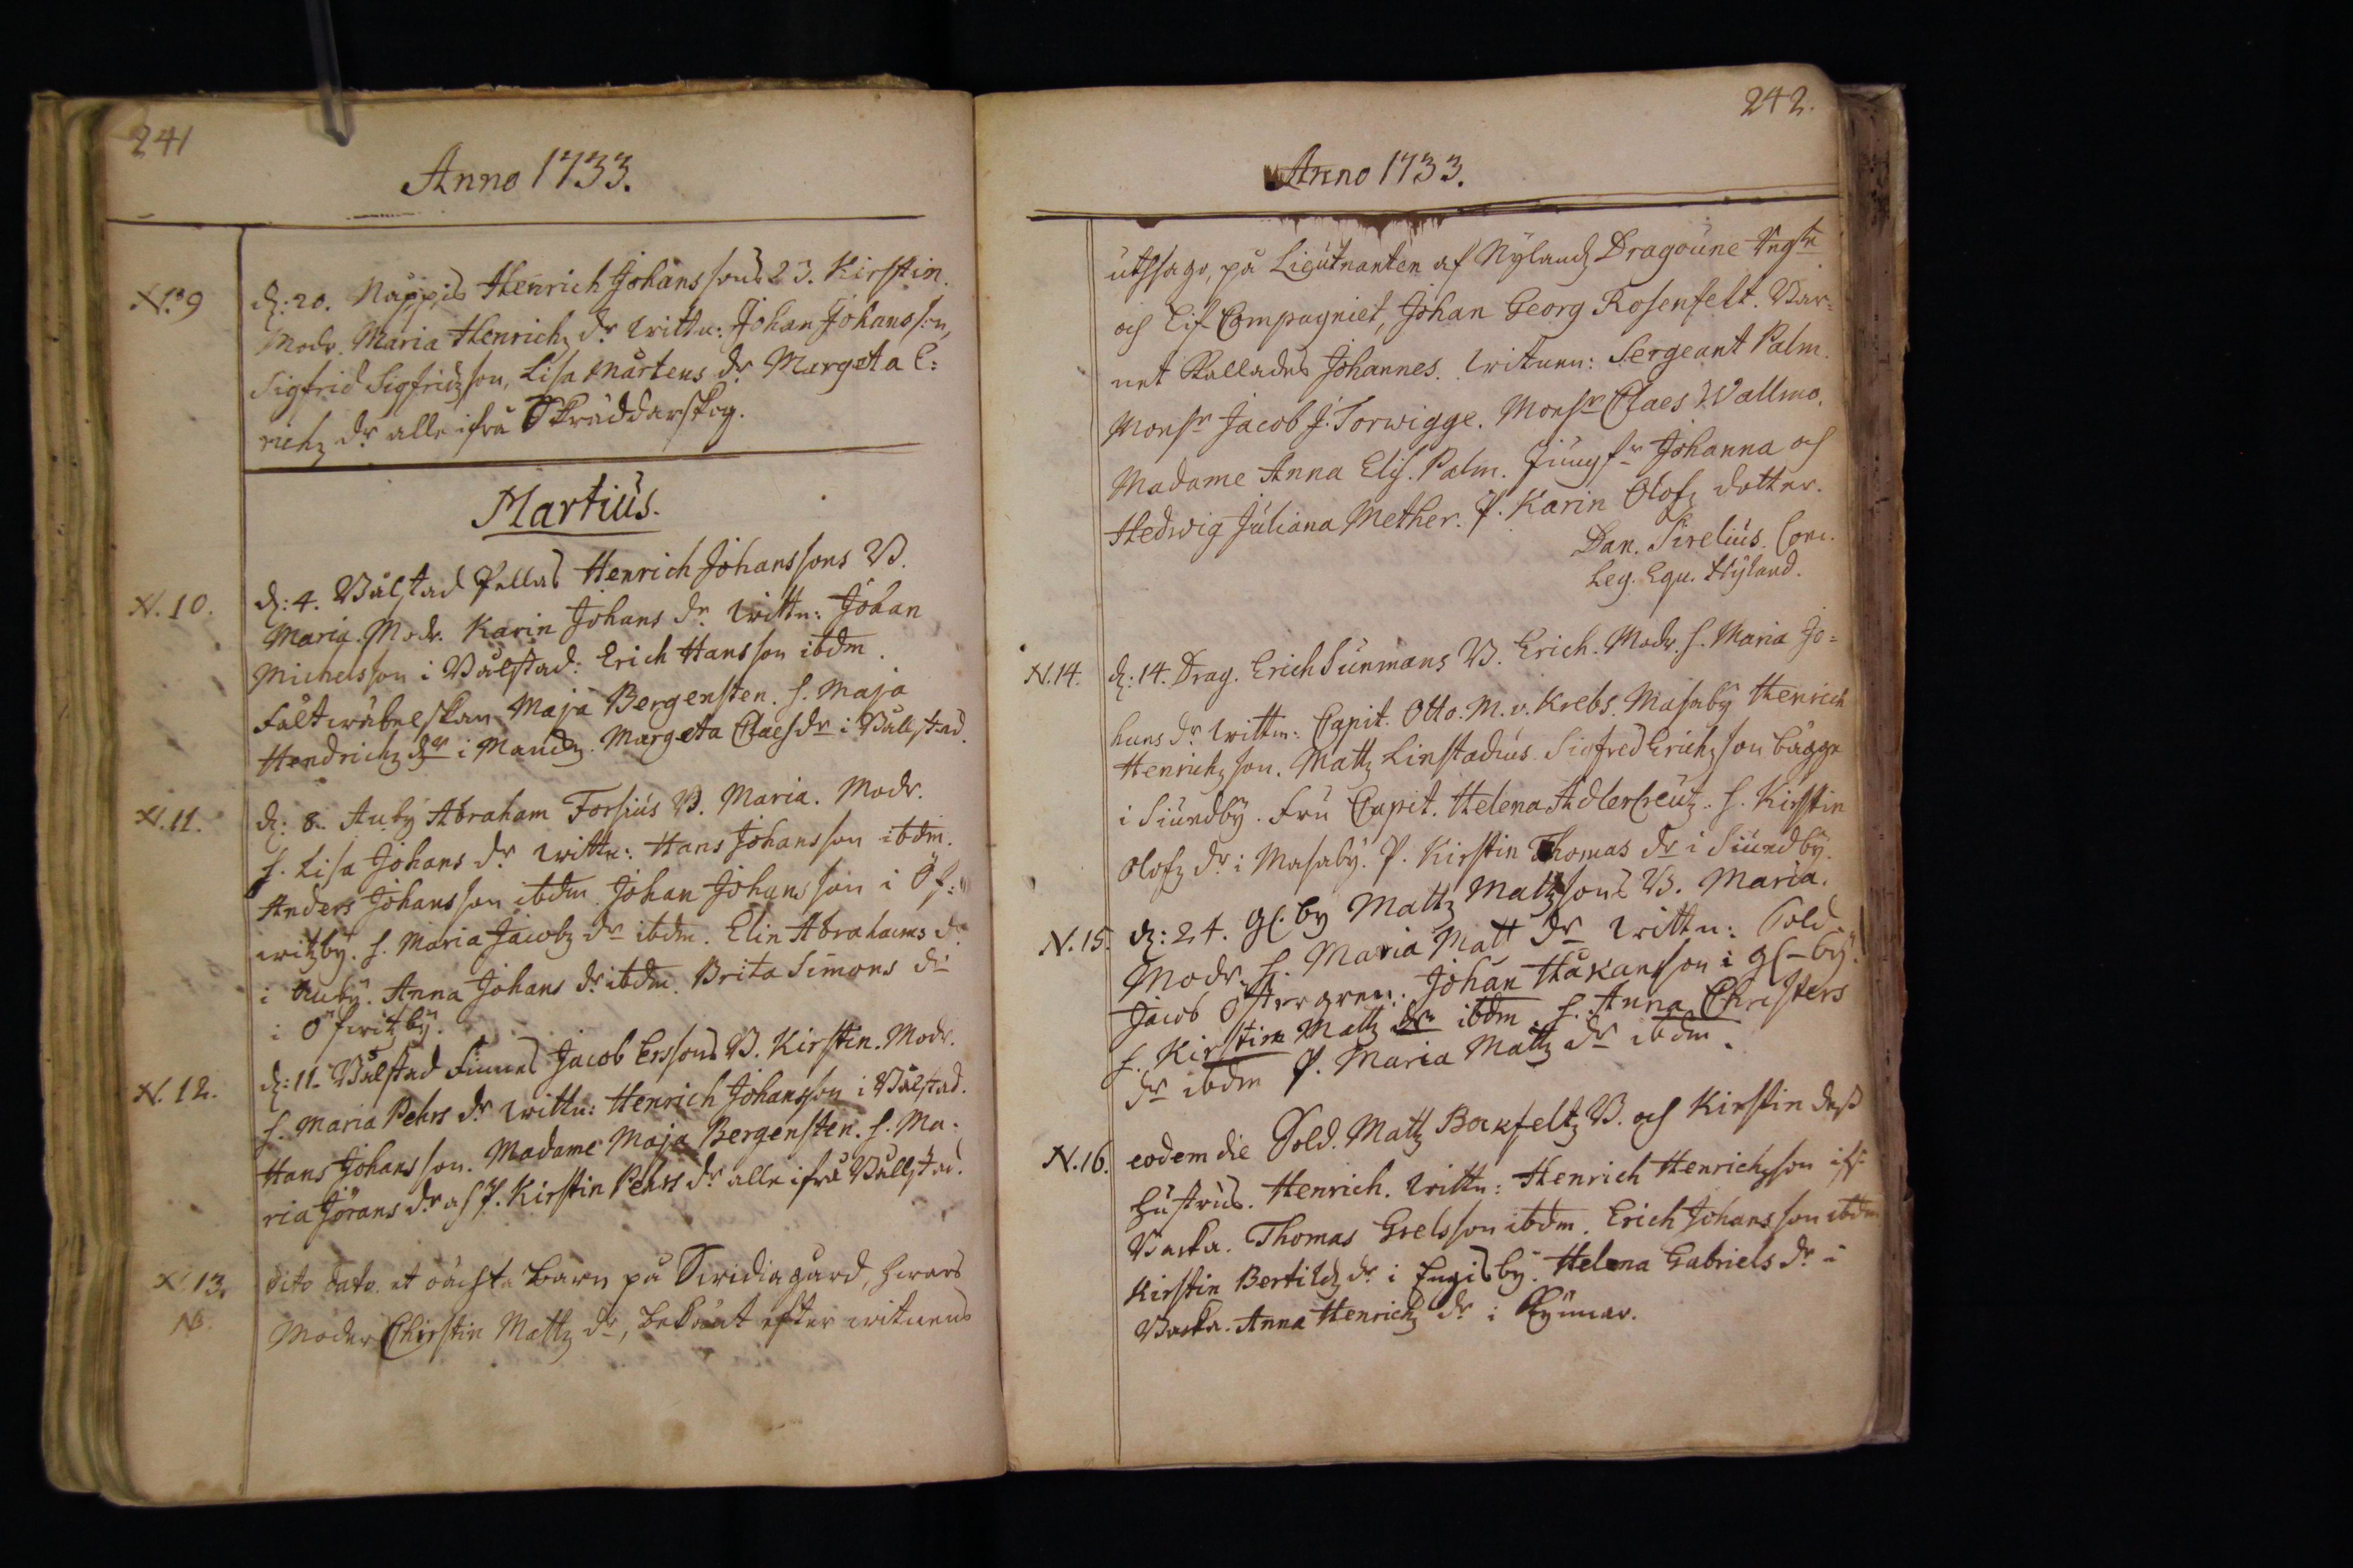 241
Anno 1733.
N:o 9
d: 20. Näppis Henrich Johanssons B. Kirstin.
Modr. Maria Henrichz dr. wittn: Johan Johansson,
Sigfrid Sigfridzson, Lisa Mårtens dr. Margeta E:
richz dr alle ifrå Skräddarskog.
Martius.
N. 10.
d: 4. Wålstad Pellas Henrich Johanssons B.
Maria. Modr. Karin Johans dr. wittn: Johan
Michelsson i Wålstad. Erich Hansson ibdm.
Fältwäbelskan Maja Bergensten. h. Maja
Hendrichz dr i Mandz. Margeta Claesdr i Wållstad.
N. 11.
d: 8. Auby Abraham Forsius B. Maria. Modr.
h. Lisa Johans dr wittn: Hans Johansson ibdm.
Anders Johansson ibdm. Johan Johansson i Öf:
witzby. h. Maria Jacobz dr ibdm. Elin Abrahams dr.
i Auby. Anna Johans dr ibdm. Brita Simons dr
i Öfwitzby.
N. 12.
d: 11. Wålstad Finnes Jacob Erssons B. Kirstin. Modr.
h. Maria Pehrs dr wittn: Henrich Johansson i Wålstad.
Hans Johansson. Madame Maja Bergensten. h. Ma:
ria Jörans dr och P. Kirstin Pehrs dr alle ifrå Wållstad.
N. 13.
NB.
dito dato. et oächta Barn på Swidiagård, hwars
Moder Chirstin Mattz dr, bekänt efter witnens
242.
Anno 1733.
uthsago, på Lieutnanten af Nylandz Dragoune Regte
och Lif Compagniet, Johan Georg Rosenfelt. Bar=
net Kallades Johannes. witnen: Sergeant Palm.
Monsr Jacob J. Torwigge. Monsr Claes Wallmo.
Madame Anna Elis. Palm. Jungfr Johanna och
Hedwig Juliana Mether. P. Karin Olofz dotter.
Dan. Sirelius. Conc.
Leg. Equ. Nyland.
N. 14.
d: 14. Drag. Erich Sunmans B. Erich. Modr. h. Maria Jo=
hans dr wittn: Capit. Otto. M. v. Krebs. Masaby Henrich
Henrichzson. Mattz Linstadius Sigfred Erichzson bägge
i Siundby. Fru Capit. Helena AdlerCreutz. h. Kirstin
Olofz dr i Masaby. P. Kirstin Thomas dr i Siundby.
N. 15.
d: 24. Gl. by Mattz Mattzsons B. Maria.
Modr. h. Maria Matt dr wittn: Sold.
Jacob Östergren. Johan Håkansson i Gl-by.
h. Kirstin Mattz dr ibdm. h. Anna Christers
dr ibdm P. Maria Mattz dr ibdm.
N. 16.
eodem die Sold. Mattz Bockfeltz B. och Kirstin dess
hustrus. Henrich. wittn: Henrich Henrichzson if:
Backa. Thomas Grelsson ibdm. Erich Johansson ibdm
Kirstin Bertildz dr i Engisby. Helena Gabriels dr i
Backa. Anna Henrichz dr i Kynnar.